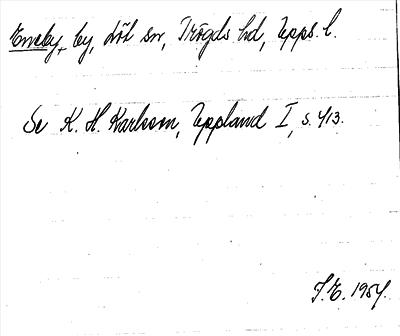 Emeby, by, Löt sn, Trögds hd, Upps. l.
Se K. H. Karlsson, Uppland I, s. 413.
S.E. 1954.